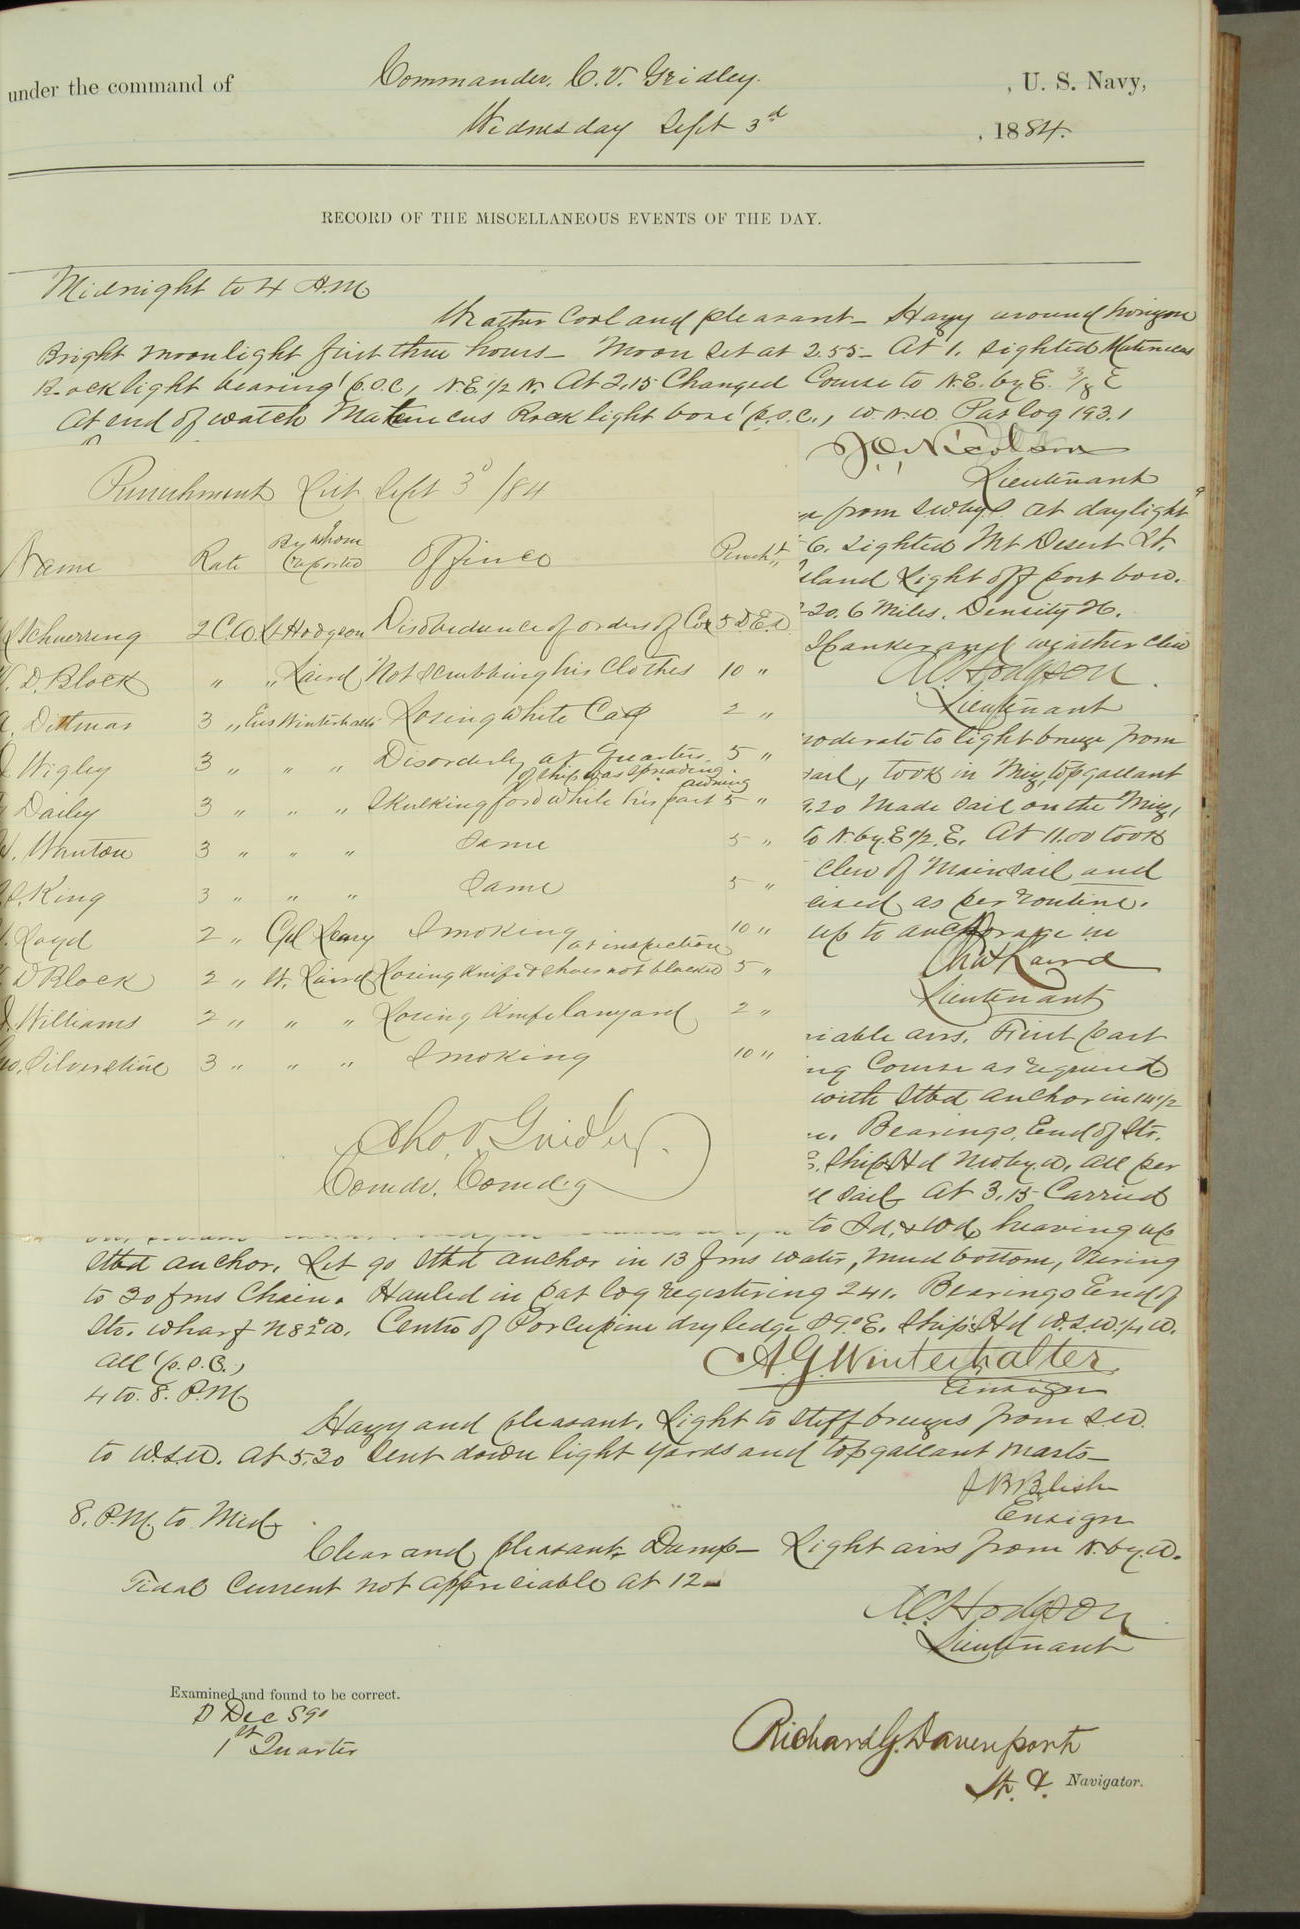 under the command of Commander. C. V. Gridley. , U. S. Navy,
Wednesday Sept 3d , 1884.
RECORD OF THE MISCELLANEOUS EVENTS OF THE DAY.
Midnight to 4 A.M.
Weather Cool and pleasant – Hazy around horizon
Bright moonlight first three hours – Moon set at 2.55 – At 1. sighted Matinicus
Rock light bearing (p.s.c.) N.E. 1/2 N. At 2.15 Changed Course to N.E. by E. 3/8 E
At end of watch Matinicus Rock light bore (p.s.c.) W.N.W. Pat log 193.1
Lieutenant
Punishment List Sept 3d /84
Name Rate By Whom Reported Offence Punisht
Schuerring 2 C.B. Lt Hodgson Disobedience of orders of Cox 5 D.E.D.
D. Block " " Laird Not scrubbing his clothes 10 "
Dittmar 3 " Ens Winterhalter Losing White Cap 2 "
Wigley 3 " " " Disorderly at Quarters 5 "
of ship was spreading awning
Dailey 3 " " " Skulking for'd while his part 5 "
Wanton 3 " " " Same 5 "
King 3 " " " Same 5 "
Loyd 2 " Cpl Leary Smoking 10 "
at inspection
D Block 2 " Lt. Laird Losing knife & shoes not blacked 5 "
Williams 2 " " " Losing knife lanyard 2 "
Silverstine 3 " " " Smoking 10 "
Chas V Gridley.
Comdr. Comdg
from S.W. by S at daylight
6. sighted Mt Desert Lt.
sland Light off port bow.
220.6 Miles. Density 26.
Spanker and weather clew
Hodgson
Lieutenant
moderate to light breeze from
sail, took in Miz topgallant
9.20 Made sail on the Miz,
to N. by E. 1/2 E. At 11.00 took
clew of Mainsail and
cised as per routine.
up to anchorage in
Chas Laird
Lieutenant
riable airs. First part
ng Course as required
with Stbd anchor in 14 1/2
Bearings, End of Str.
E. Ship's Hd N.W. by W. all per
sail. At 3.15 Carried
to Id, & Wd, heaving up
Stbd anchor. Let go Stbd anchor in 13 fms water, mud bottom, Veering
to 30 fms Chain. Hauled in pat log registering 241. Bearings End of
Str. wharf N82°W. Centre of Porcupine dry ledge S9°E. Ship's Hd W.S.W. 1/4 W.
All (p.s.c.)
A. G. Winterhalter
Ensign
4 to 8. P.M.
Hazy and pleasant. Light to stiff breezes from S.W.
to W.S.W. At 5.30 Sent down light yards and topgallant masts –
J B Blish
Ensign
8. P.M. to Mid
Clear and pleasant – Damp – Light airs from N. by W.
Tidal Current not appreciable at 12 –
Hodgson
Lieutenant
Examined and found to be correct.
1st Quarter
Richard G. Davenport
Navigator.